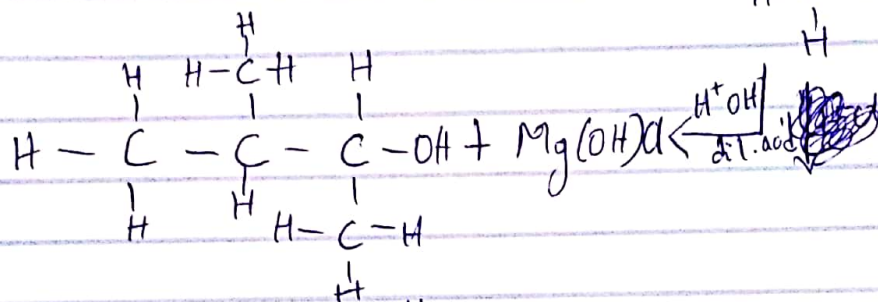 H
H H-C-H H
H
H - C - C - C - OH + Mg(OH)Cl H⁺OH
dil. acid
H H H-C-H
H